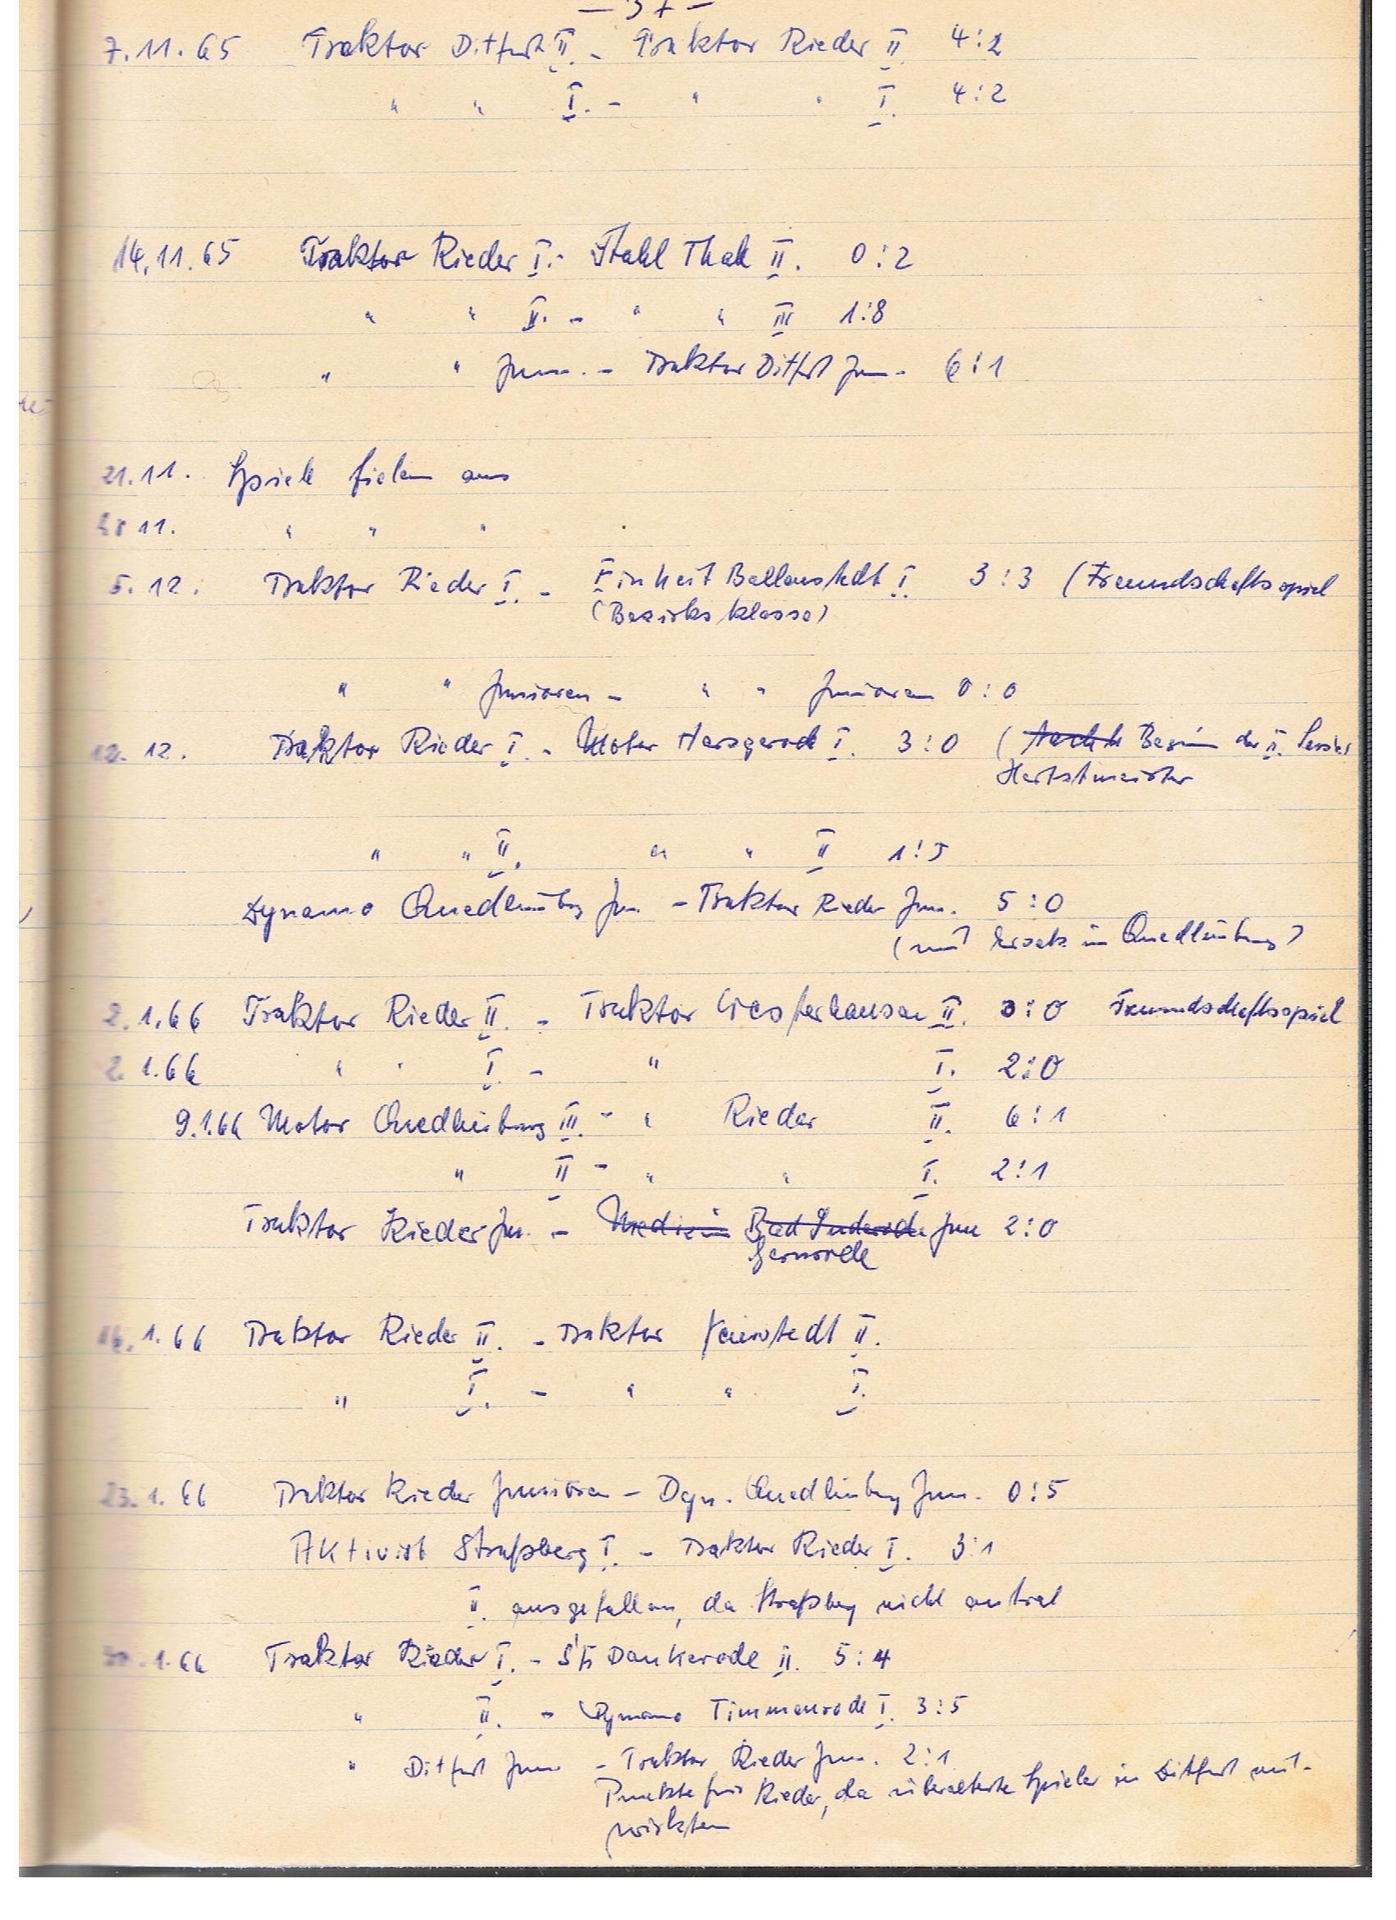 — 37 —
7.11.65 Traktor Ditfurt II. - Traktor Rieder II. 4:2
" " I. - " " I. 4:2
14.11.65 Traktor Rieder I. - Stahl Thale II. 0:2
" " II. - " " III 1:8
" " Jun. - Traktor Ditfurt Jun. 6:1
21.11. Spiele fielen aus
28 11. " " "
5.12. Traktor Rieder I. - Einheit Ballenstedt I. 3:3 (Freundschaftsspiel
(Bezirksklasse)
" " Junioren - " " Junioren 0:0
12.12. Traktor Rieder I. - Motor Harzgerode I. 3:0 ( Beginn der II. Serie
Herbstmeister
" " II. " " II 1:5
Dynamo Quedlinburg Jun. - Traktor Rieder Jun. 5:0
(mit Ersatz in Quedlinburg)
2.1.66 Traktor Rieder II. - Traktor Westerhausen II. 3:0 Freundschaftsspiel
2.1.66 " " I. - " I. 2:0
9.1.66 Motor Quedlinburg III. - " Rieder II. 6:1
" II - " " I. 2:1
Traktor Rieder Jun. - Medizin Bad Suderode Jun 2:0
Gernrode
16.1.66 Traktor Rieder II. - Traktor Neinstedt II.
" I. - " " I.
23.1.66 Traktor Rieder Junioren - Dyn. Quedlinburg Jun. 0:5
Aktivist Straßberg I. - Traktor Rieder I. 3:1
II. ausgefallen, da Straßberg nicht antrat
30.1.66 Traktor Rieder I. - SG Dankerode II. 5:4
" II. - Dynamo Timmenrode I. 3:5
" Ditfurt Jun. - Traktor Rieder Jun. 2:1
Punkte für Rieder, da überalterte Spieler in Ditfurt mit-
wirkten